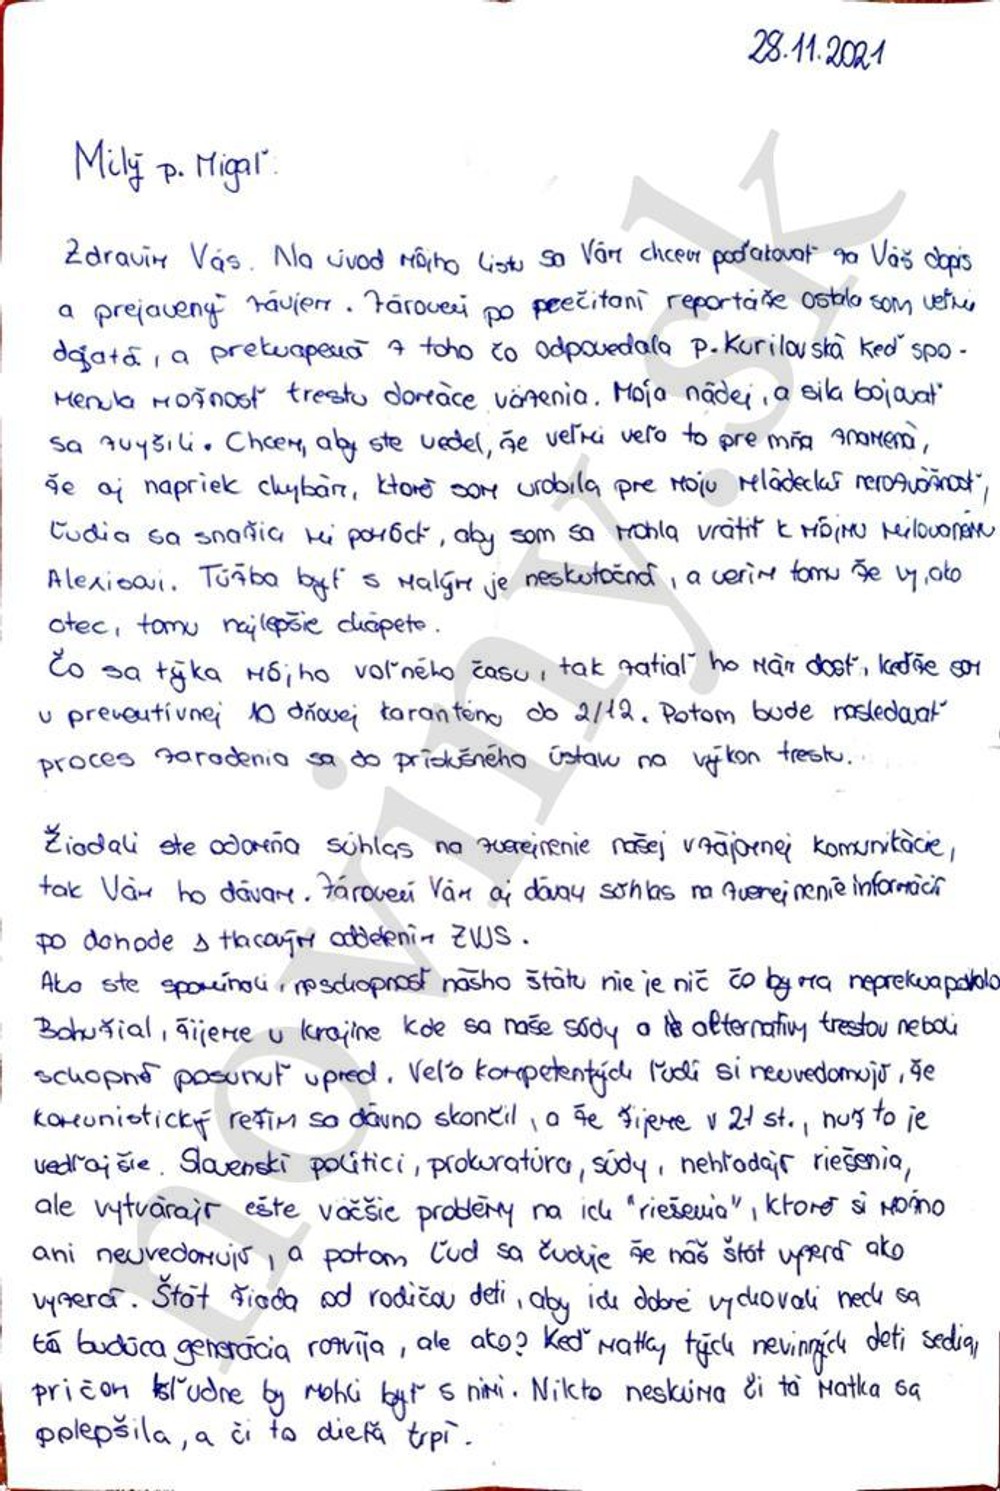 28.11.2021
Milý p. Migaľ.
Zdravím Vás. Na úvod môjho listu sa Vám chcem poďakovať za Váš dopis
a prejavený záujem. Zároveň po prečítaní reportáže ostala som veľmi
dojatá, a prekvapená z toho čo odpovedala p. Kurilovská keď spo-
menula možnosť trestu domáce väzenia. Moja nádej, a sila bojovať
sa zvýšili. Chcem, aby ste vedel, že veľmi veľo to pre mňa znamená,
že aj napriek chybám, ktoré som urobila pre moju mládeckú nerozvážnosť,
ľudia sa snažia mi pomôcť, aby som sa mohla vrátiť k môjmu milovanému
Alexisovi. Túžba byť s malým je neskutočná, a verím tomu že vy, ako
otec, tomu najlepšie chápete.
Čo sa týka môjho voľného času, tak zatiaľ ho mám dosť, keďže som
v preventívnej 10 dňovej karanténe do 2/12. Potom bude nasledovať
proces zaradenia sa do príslušného ústavu na výkon trestu.
Žiadali ste odomňa súhlas na zverejnenie našej vzájomnej komunikácie,
tak Vám ho dávam. Zároveň Vám aj dávam súhlas na zverejnenie informácií
po dohode s tlačovým oddelením ZVJS.
Ako ste spomínali, neschopnosť nášho štátu nie je nič čo by ma neprekvapovalo
Bohužial, žijeme v krajine kde sa naše súdy a alternatívy trestov neboli
schopné posunúť vpred. Veľa kompetentých ľudí si neuvedomujú, že
komunistický režim sa dávno skončil, a že žijeme v 21 st., nuž to je
vedľajšie. Slovenskí politici, prokuratúra, súdy, nehľadajú riešenia,
ale vytvárajú ešte väčšie problémy na ich "riešenia", ktoré si možno
ani neuvedomujú, a potom ľud sa čuduje že náš štát vyzerá ako
vyzerá. Štát žiada od rodičov detí, aby ich dobré vychovali nech sa
tá budúca generácia rozvíja, ale ako? Keď matky tých nevinných detí sedia,
pričom kľudne by mohli byť s nimi. Nikto neskúma či tá matka sa
polepšila, a či to dieťa trpí.
noviny.sk